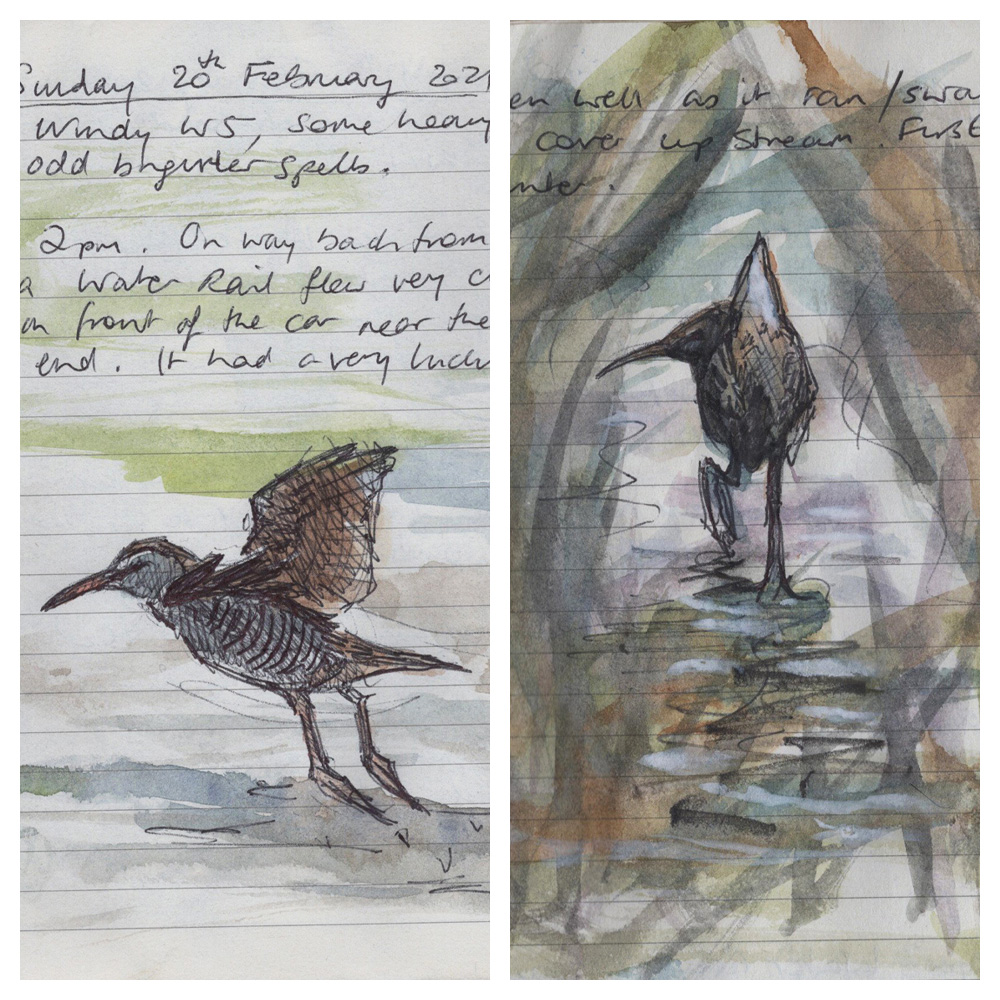 Sunday 20th February 202
Windy W5, some heavy
odd brighter spells.
2pm. On way back from
a Water Rail flew very c
in front of the car near the
end. It had a very luck
en well as it ran/swa
cover up stream. First
nter.